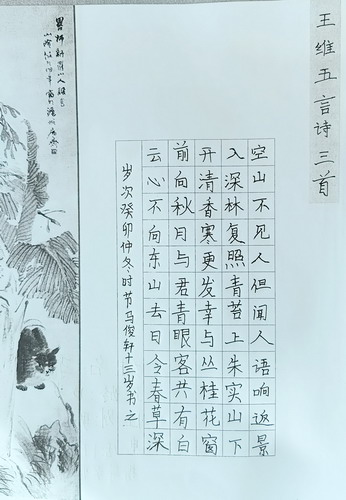 王维五言诗三首
空山不见人但闻人语响返景
入深林复照青苔上朱实山下
开清香寒更发幸与丛桂花窗
前向秋月与君青眼客共有白
云心不向东山去日令春草深
岁次癸卯仲冬时节马俊轩十三岁书之